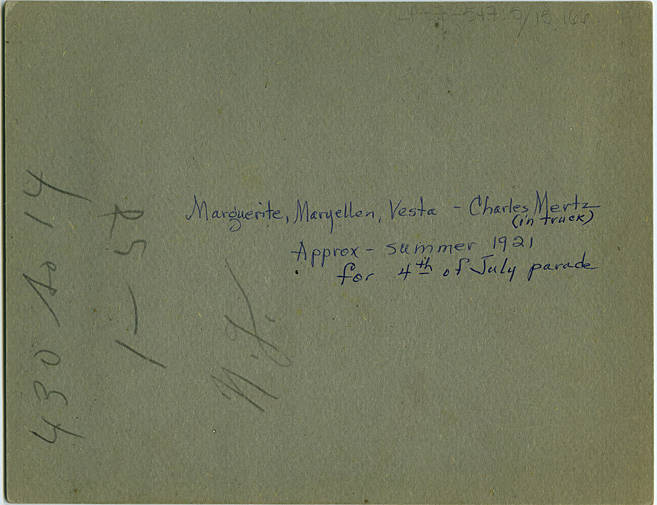 Marguerite, Maryellen, Vesta - Charles Mertz
(in truck)
Approx - summer 1921
for 4th of July parade
430 So 14
1 - 5d
N.J.